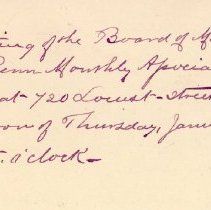 ting of the Board of M
Penn Monthly Associa
at 720 Locust Street
on of Thursday, Janu
o'clock—